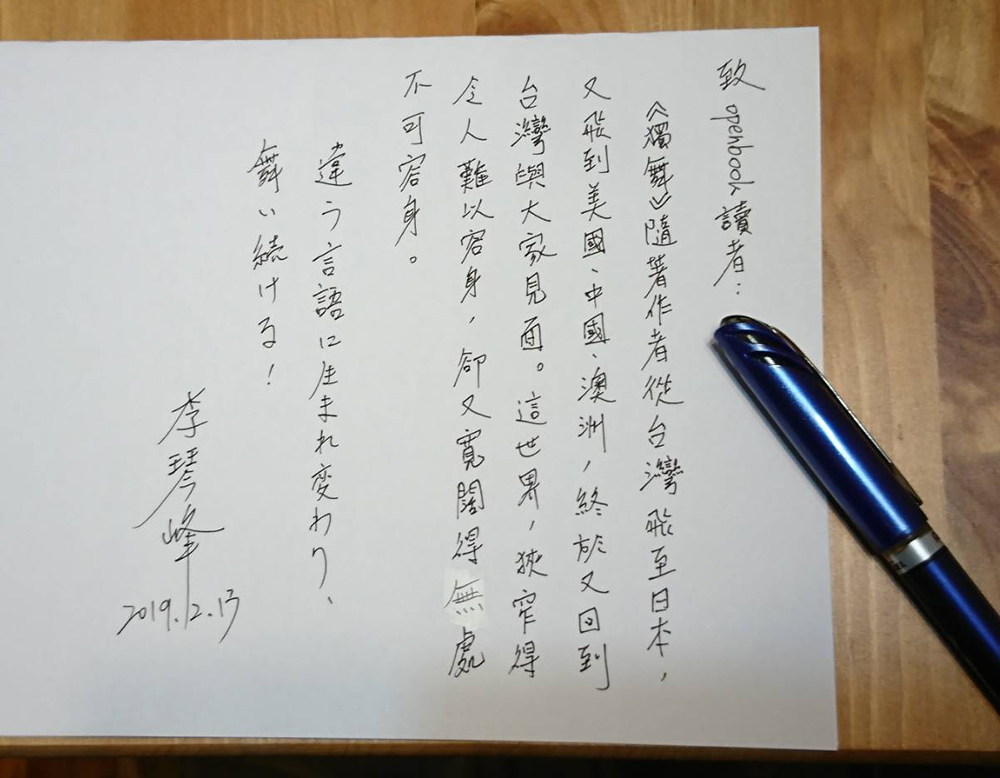 致 openbook 讀者：
《獨舞》隨著作者從台灣飛至日本，
又飛到美國、中國、澳洲，終於又回到
台灣與大家見面。這世界，狹窄得
令人難以容身，卻又寬闊得無處
不可容身。
違う言語に生まれ変わり、
舞い続ける！
李琴峰
2019.2.13